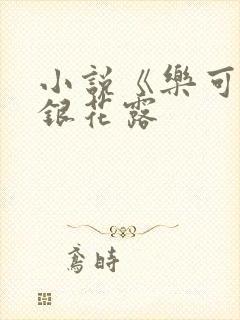 小説《樂可
銀花露
鳶時